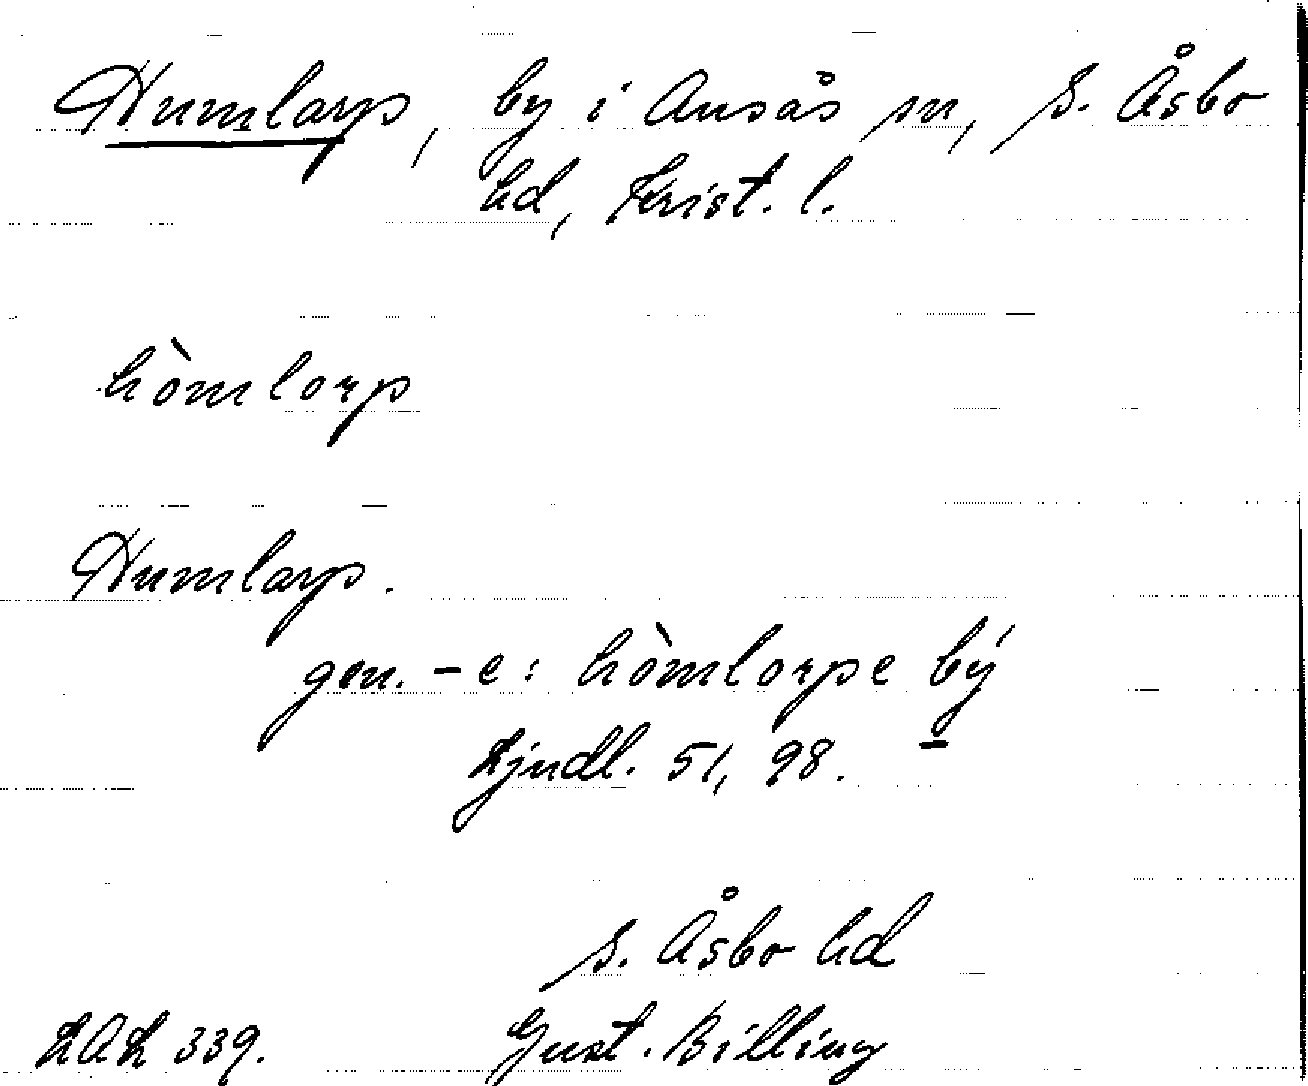 Humlarp, by i Ausås sn, S. Åsbo
hd, Krist. l.
hòmlorp
Humlarp.
gen. -e: hòmlorpe bý
Ljudl. 51, 98.
S. Åsbo hd
LAL 339. Gust. Billing